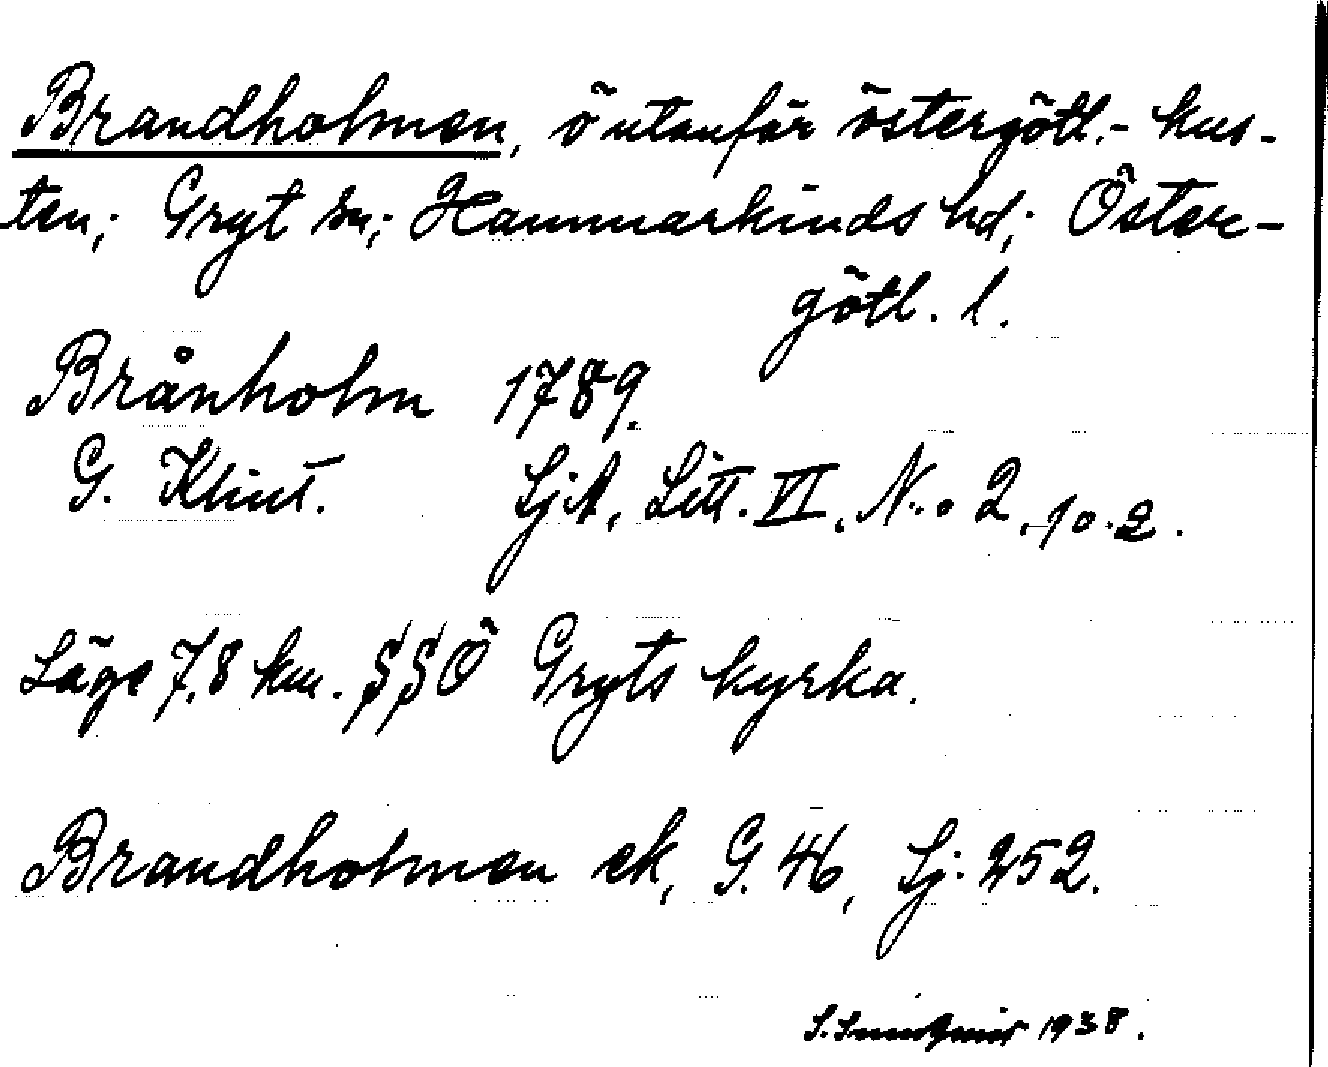 Brandholmen, ö utanför östergötl.- kus-
ten; Gryt sn; Hammarkinds hd; Öster-
götl. l.
Brånholm 1789.
G. Klint. SjA, Litt. VI, N:o 2, 10.2.
Läge 7,8 km. SSÖ Gryts kyrka.
Brandholmen ek, G. 46, Sj: 252.
S. Lundqvist 1938.